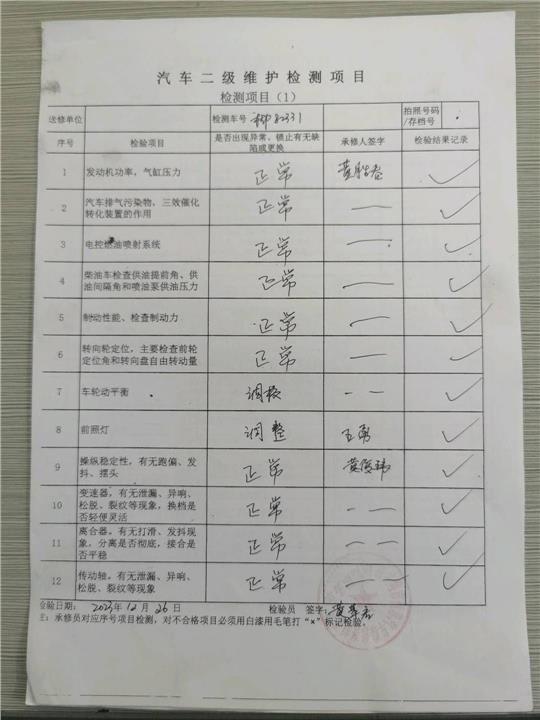 汽车二级维护检测项目
检测项目（1）
送修单位 检测车号 82331 拍照号码/存档号
序号 检验项目 是否出现异常、锁止有无缺陷或更换 承修人签字 检验结果记录
1 发动机功率，气缸压力 正常 ✓
2 汽车排气污染物，三效催化转化装置的作用 正常 — ✓
3 电控燃油喷射系统 正常 — ✓
4 柴油车检查供油提前角、供油间隔角和喷油泵供油压力 正常 — ✓
5 制动性能、检查制动力 正常 — ✓
6 转向轮定位，主要检查前轮定位角和转向盘自由转动量 正常 — ✓
7 车轮动平衡 调校 — — ✓
8 前照灯 调整 王勇 ✓
9 操纵稳定性，有无跑偏、发抖、摆头 正常 ✓
10 变速器，有无泄漏、异响、松脱、裂纹等现象，换档是否轻便灵活 正常 — — ✓
11 离合器，有无打滑、发抖现象，分离是否彻底，接合是否平稳 正常 — — ✓
12 传动轴，有无泄漏、异响、松脱、裂纹等现象 正常 — — ✓
检验日期： 2023年12月26日 检验员 签字：
注：承修员对应序号项目检测，对不合格项目必须用白漆用毛笔打“×”标记检验。